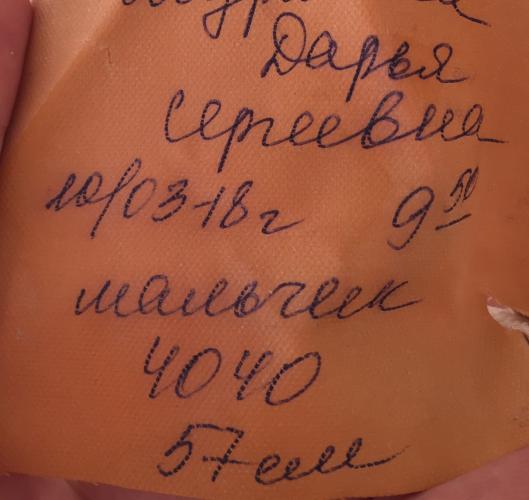 Дарья
Сергеевна
10/03-18г 9 50
мальчик
4040
57см